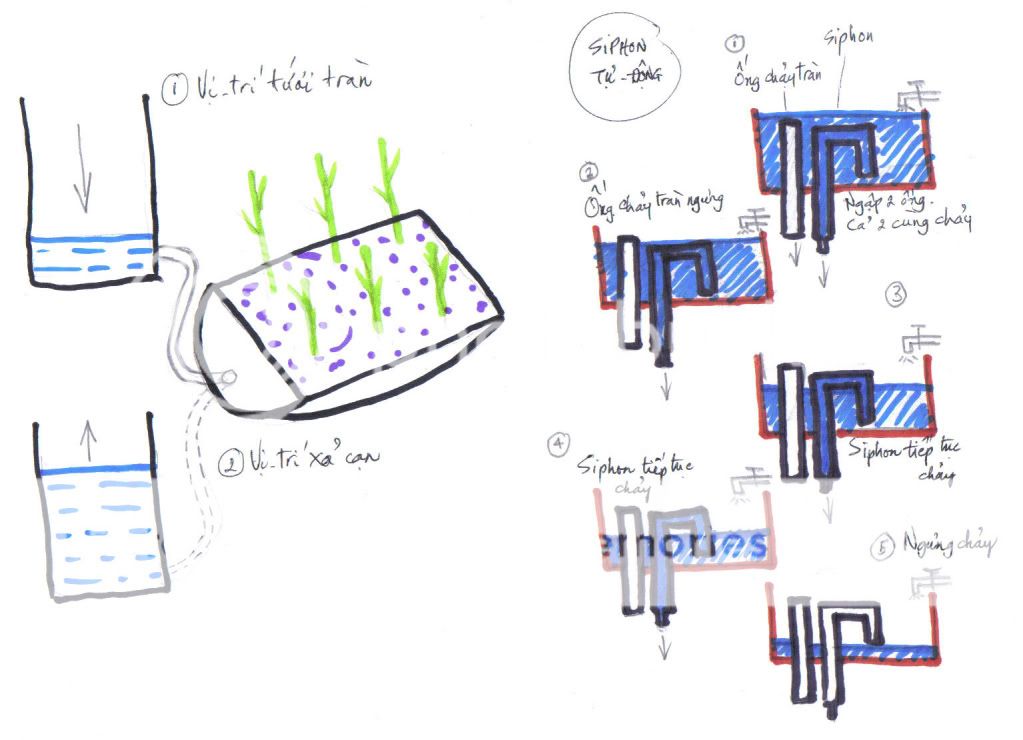 ① Vị-trí tưới tràn
② Vị-trí xả cạn
SIPHON
TỰ-ĐỘNG
①
Siphon
Ống chảy tràn
Ngập 2 ống.
Cả 2 cùng chảy
②
Ống chảy tràn ngưng
③
Siphon tiếp tục
chảy
④
Siphon tiếp tục
chảy
⑤ Ngưng chảy